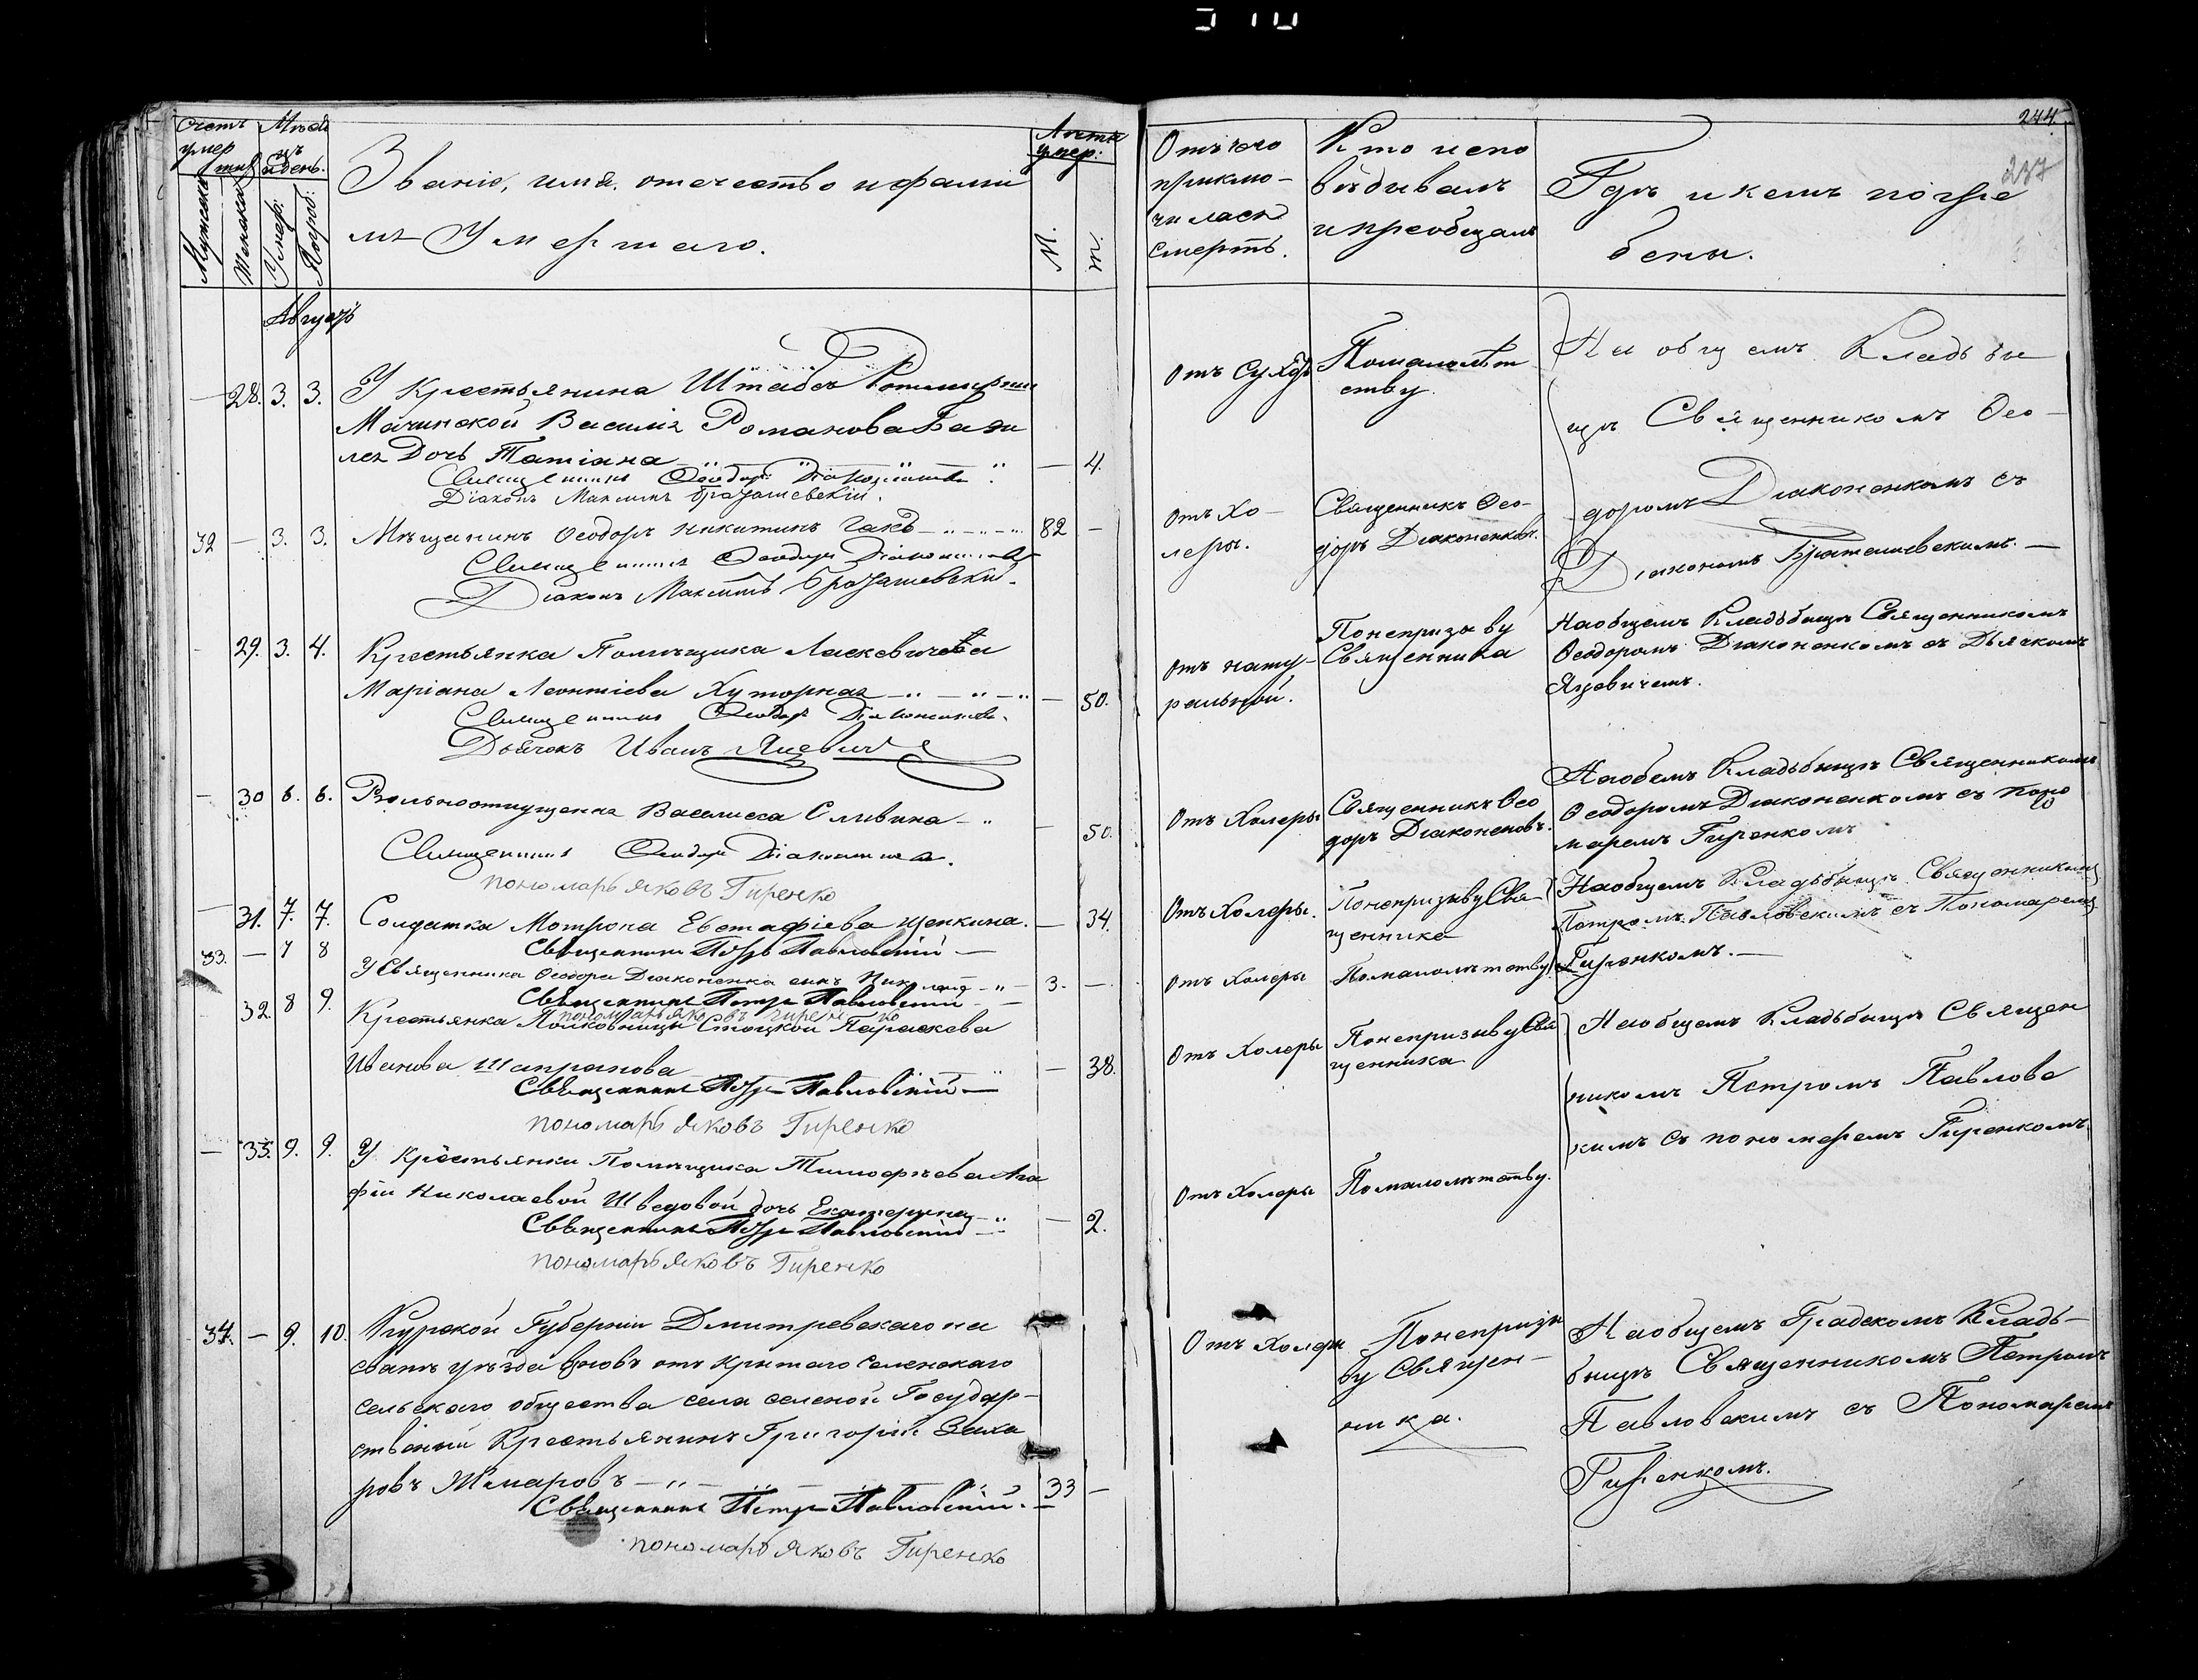 244.
237
Счетъ умер шихъ
Мѣся цъ и день.
Званіе, имя, отечество и фамилі
я Умершаго.
Лѣта умер:
Мужеска
Женска
Умер:
Погреб:
М.
Ж
Отъ чего
приклю-
чилась
смерть.
Кто испо
вѣдывалъ
и пріобщалъ
Гдѣ и кемъ погре
бены.
Августъ
— 28. 3. 3. У Крестьянина Штабсъ Ротмистрши
Мачинской Василія Романова
Дочь Татіана — 4.
Священникъ Ѳеодоръ Діаконенковъ
Діаконъ Максимъ Браташевскій.
Отъ Сухот
По малолѣт
ству.
На общемъ Кладьби
щѣ Священникомъ Ѳео-
доромъ Діаконенкомъ съ
Діакономъ Браташевскимъ. —
32 — 3. 3. Мѣщанинъ Ѳеодоръ Никитинъ Гакъ 82 —
Священникъ Ѳеодоръ Діаконенковъ
Діаконъ Максимъ Браташевскій.
Отъ Хо-
леры.
Священникъ Ѳео-
доръ Діаконенковъ.
29. 3. 4. Крестьянка Помѣщика Ласкевичева
Маріана Леонтіева Хуторная — 50.
Священникъ Ѳеодоръ Діаконенковъ.
Дьячокъ Иванъ Яцевичъ
Отъ нату-
ральной.
По непризыву
Священника
На общемъ Кладьбищѣ Священникомъ
Ѳеодоромъ Діаконенкомъ съ Дьячкомъ
Яцевичемъ.
— 30 6. 6. Вольноотпущенна Василиса Сливина — 50.
Священникъ Ѳеодоръ Діаконенковъ.
пономарь Яковъ Гиренко
Отъ Холеры
Священникъ Ѳео
доръ Діаконеновъ.
На обемъ Кладьбищѣ Священникомъ
Ѳеодоромъ Діаконенкомъ съ поно
маремъ Гиренкомъ
— 31. 7. 7. Солдатка Мотрона Евстафіева Щепкина. — 34.
Священникъ Петръ Павловскій —
Отъ Холеры.
По непризыву Свя-
щенника
На общемъ Кладьбищѣ Священникомъ
Петромъ Павловскимъ съ Пономаремъ
Гиренкомъ. —
33. — 7 8 У Священника Ѳеодора Діаконенка сынъ Николай 3. —
Священникъ Петръ Павловскій —
пономарь Яковъ Гиренко
Отъ Холеры
По малолѣтству
32. 8 9. Крестьянка Полковницы Стоцкой Параскева
Иванова Шапранова — 38.
Священникъ Петръ Павловскій —
пономарь Яковъ Гиренко
Отъ Холеры
По непризыву Свя
щенника
На общемъ Кладьбищѣ Священ
никомъ Петромъ Павловс
кимъ съ пономаремъ Гиренкомъ
— 33. 9. 9. У Крестьянки Помѣщика Тимофѣева Ага
фіи Николаевой Шведовой дочь Екатерина — 2.
Священникъ Петръ Павловскій —
пономарь Яковъ Гиренко
Отъ Холеры
По малолѣтству.
34. — 9. 10. Курской Губерніи Дмитревскаго на
сватѣ уѣзда
сельскаго общества села селеной Государ-
ственный Крестьянинъ Григорій Заха
ровъ Шмаровъ 33 —
Священникъ Петръ Павловскій. —
пономарь Яковъ Гиренко
Отъ Холеры
По непризы
ву Священ-
ника.
На общемъ Градскомъ Кладь-
бищѣ Священникомъ Петромъ
Павловскимъ съ Пономаремъ
Гиренкомъ.